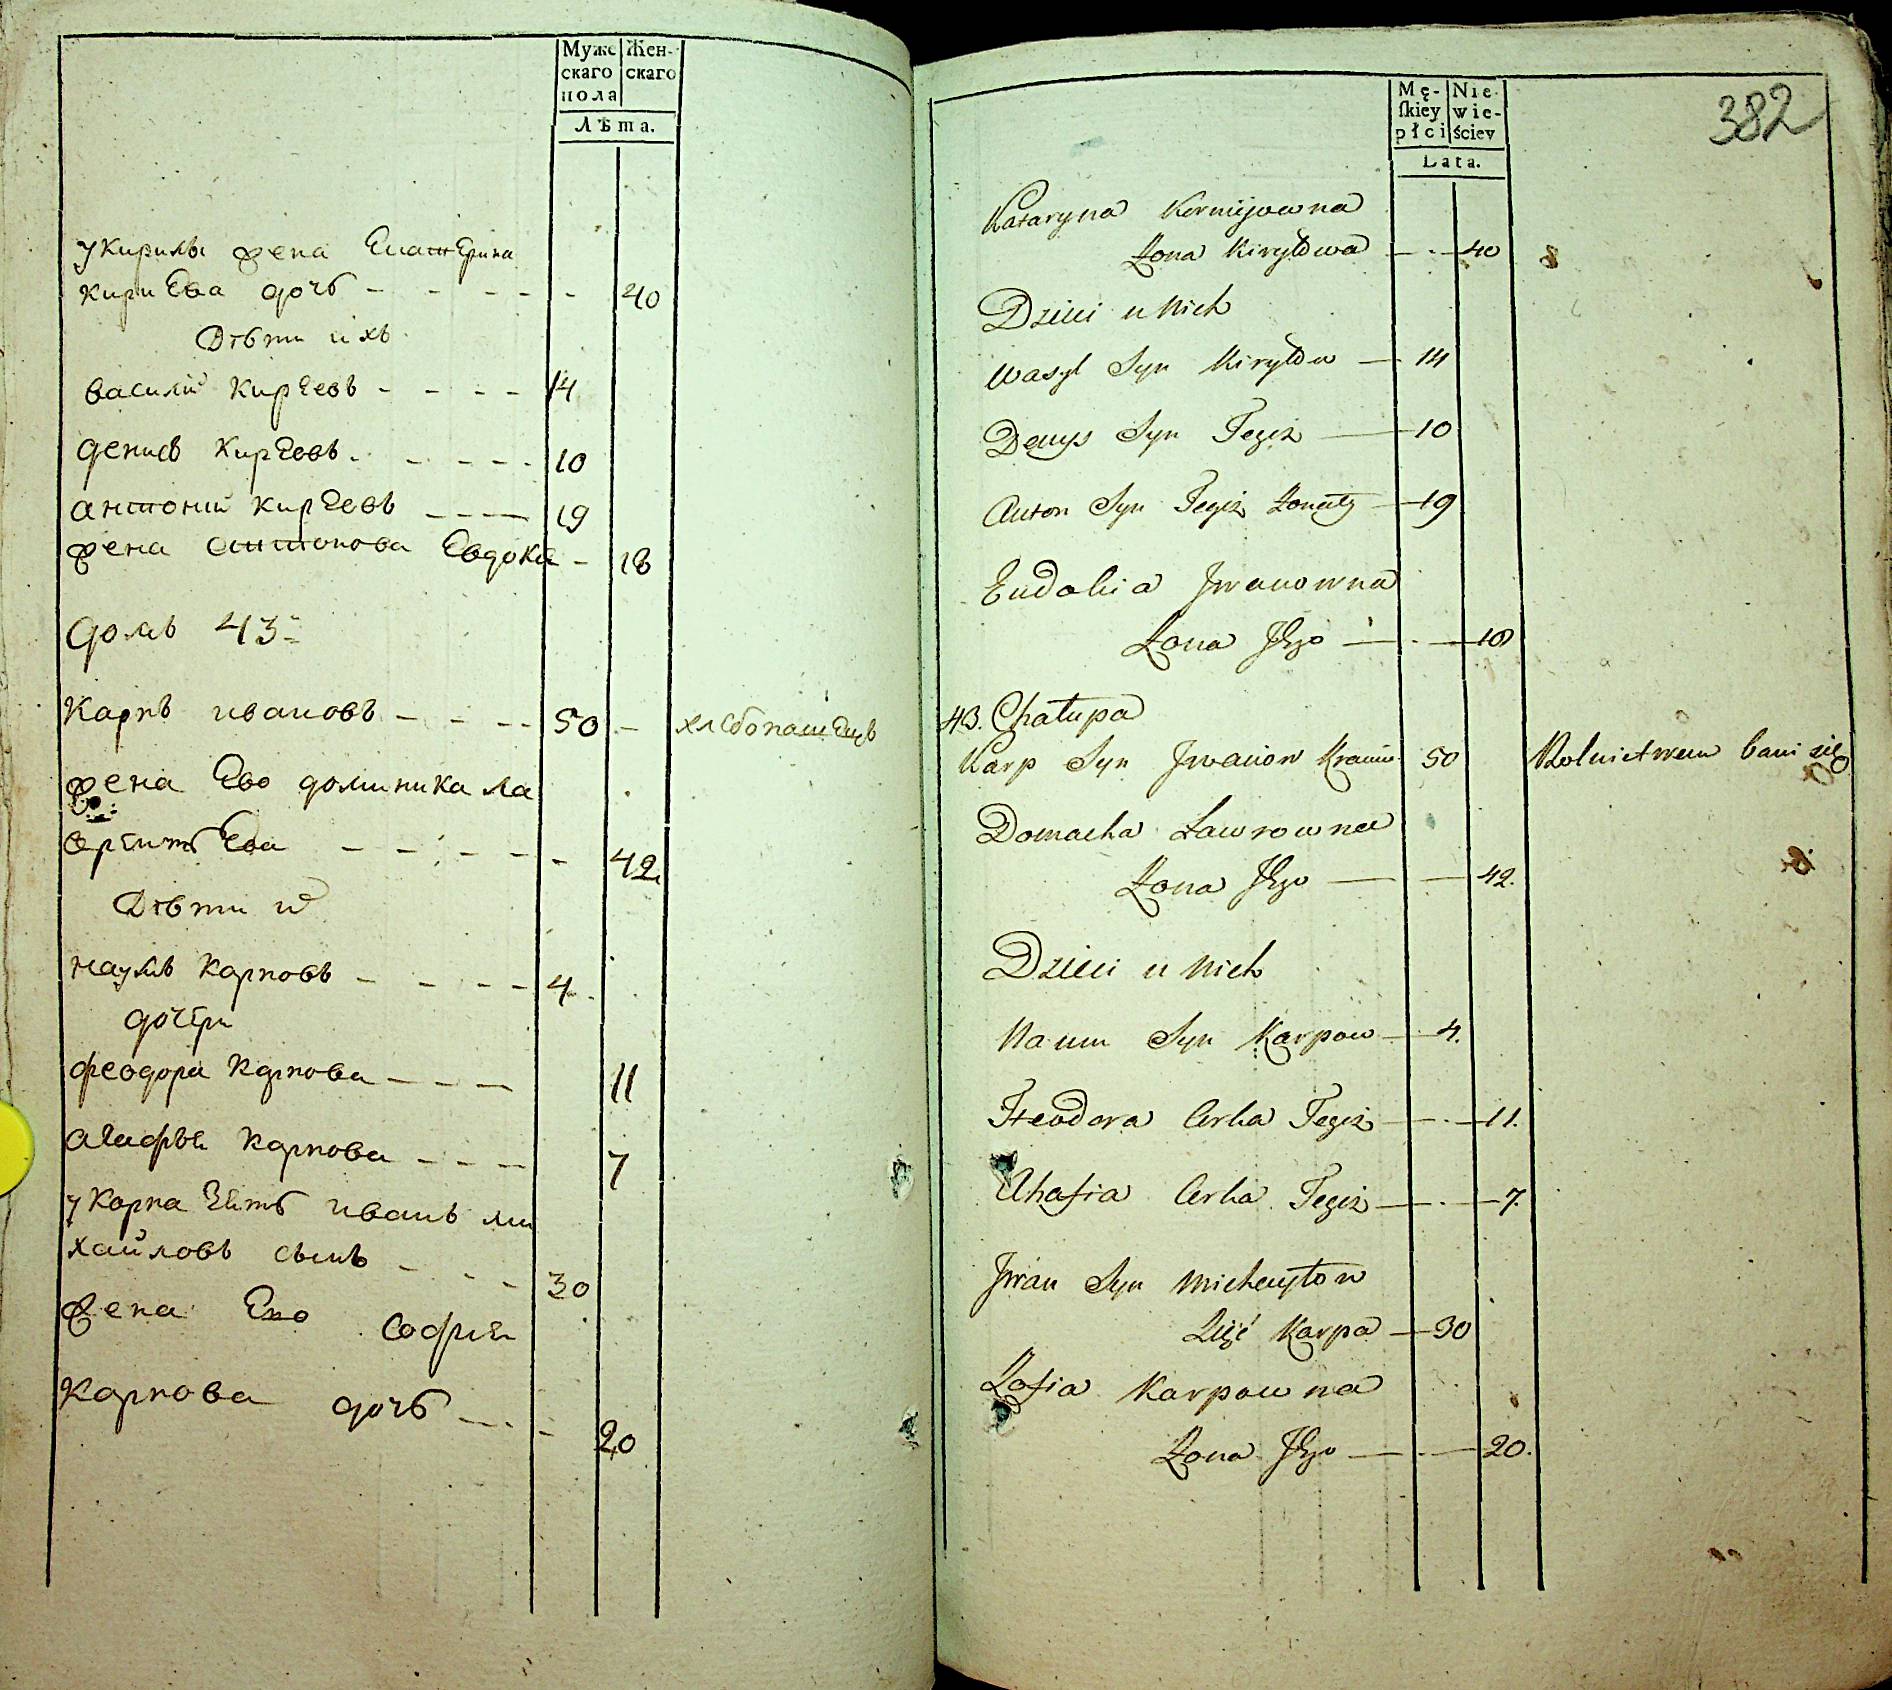 Муже Жен-
скаго скаго
пола
Лѣта.
у Кирилы жена Екатерина
Кириева дочь - - - - - 40
Дѣти ихъ
василий Киреевъ - - - - 14
денисъ Киреевъ. - - - - 10
антоний Киреевъ - - - - 19
жена антонова Евдокия - 18
домъ 43й
Карпъ ивановъ - - - - 50 - хлебопашецъ
жена Ево доминика ла
врентьева - - - - - 42
Дѣти их
наумъ Карповъ - - - - 4
дочери
феодора Карпова - - - 11
агафья Карпова - - - 7
у Карпа зять иванъ ми
хайловъ сынъ - - - 30
жена Ево софия
Карпова дочь - - - 20
Mę- Nie
skiey wie-
płci ściey
Lata.
382
Kataryna
Żona Kiryłowa — 40
Dzieci u Nich
Wasyl Syn Kiryłow — 14
Denys Syn Tegiż — 10
Anton Syn Tegiż Żonaty — 19
Eudokia Jwanowna
Żona Jego — 18
43. Chałupa
Karp Syn Jwanow 50 Rolnictwem bawi się
Domacha Ławrowna
Żona Jego — 42.
Dzieci u Nich
Naum Syn Karpow — 4.
Fteodora Corka Tegiż — 11.
Ahafia Corka Tegiż — 7.
Jwan Syn Michayłow
Zięć Karpa — 30
Zofia Karpowna
Żona Jego — 20.